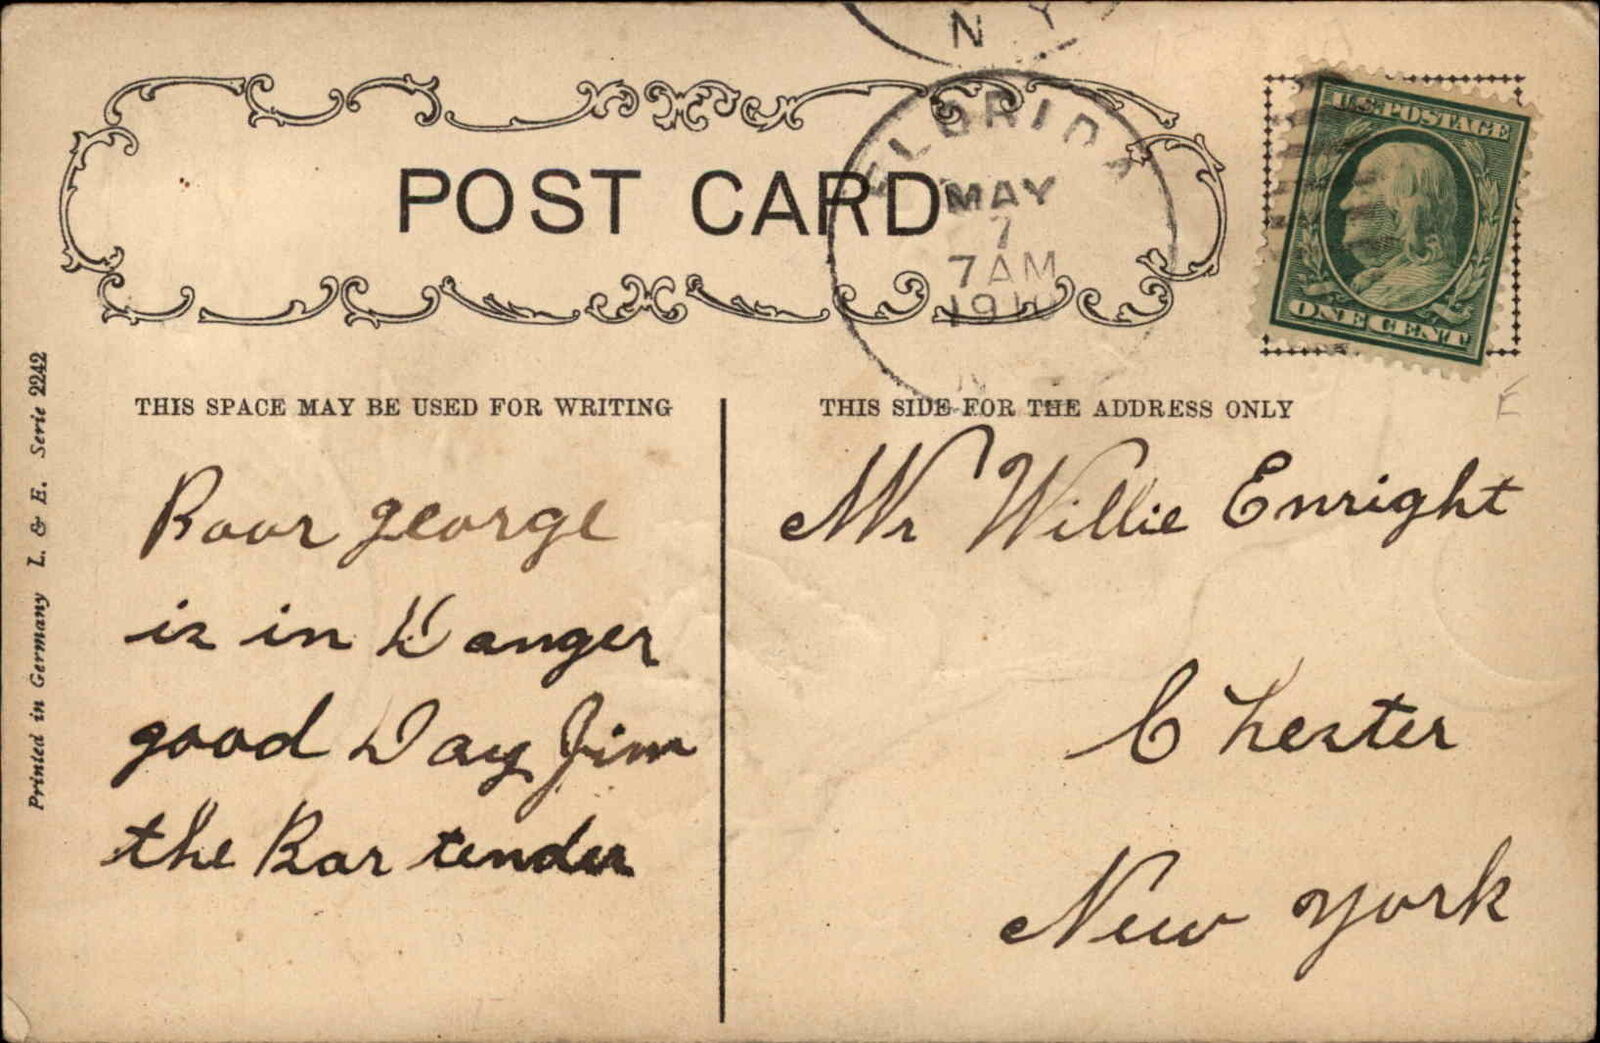 N Y
POST CARD
ELBRIDG
MAY
7
7 AM
U.S. POSTAGE
ONE CENT
THIS SPACE MAY BE USED FOR WRITING
Poor george
is in Danger
good Day Jim
the Bar tender
THIS SIDE FOR THE ADDRESS ONLY
Mr Willie Enright
Chester
New York
Printed in Germany L. & E. Serie 2242
E